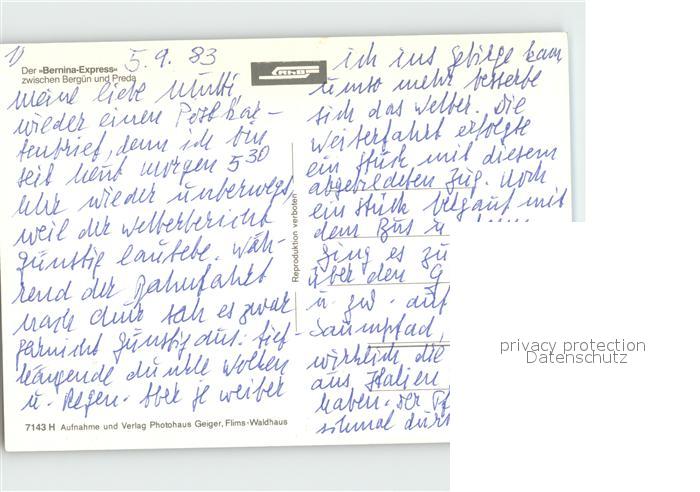 1)
5.9.83
Der »Bernina-Express«
zwischen Bergün und Preda
RhB
meine liebe Mutti,
wieder einen Postkar-
tenbrief, denn ich bin
seit heut morgen 5 30
Uhr wieder unterwegs,
weil der Wetterbericht
günstig lautete. Wäh-
rend der Bahnfahrt
nach Chur sah es zwar
garnicht günstig aus: tief-
hängende dunkle Wolken
u. Regen. Aber je weiter
ich ins Gebirge kam
umso mehr besserte
sich das Wetter. Die
Weiterfahrt erfolgte
ein Stück mit diesem
abgebildeten Zug. Noch
ein Stück bergauf mit
dem Bus u
ging es zu
über den G
u. zw. auf
Saumpfad,
wirklich die
aus Italien
haben. Der Pf
schmal durch
Reproduktion verboten
7143 H Aufnahme und Verlag Photohaus Geiger, Flims-Waldhaus
privacy protection
Datenschutz